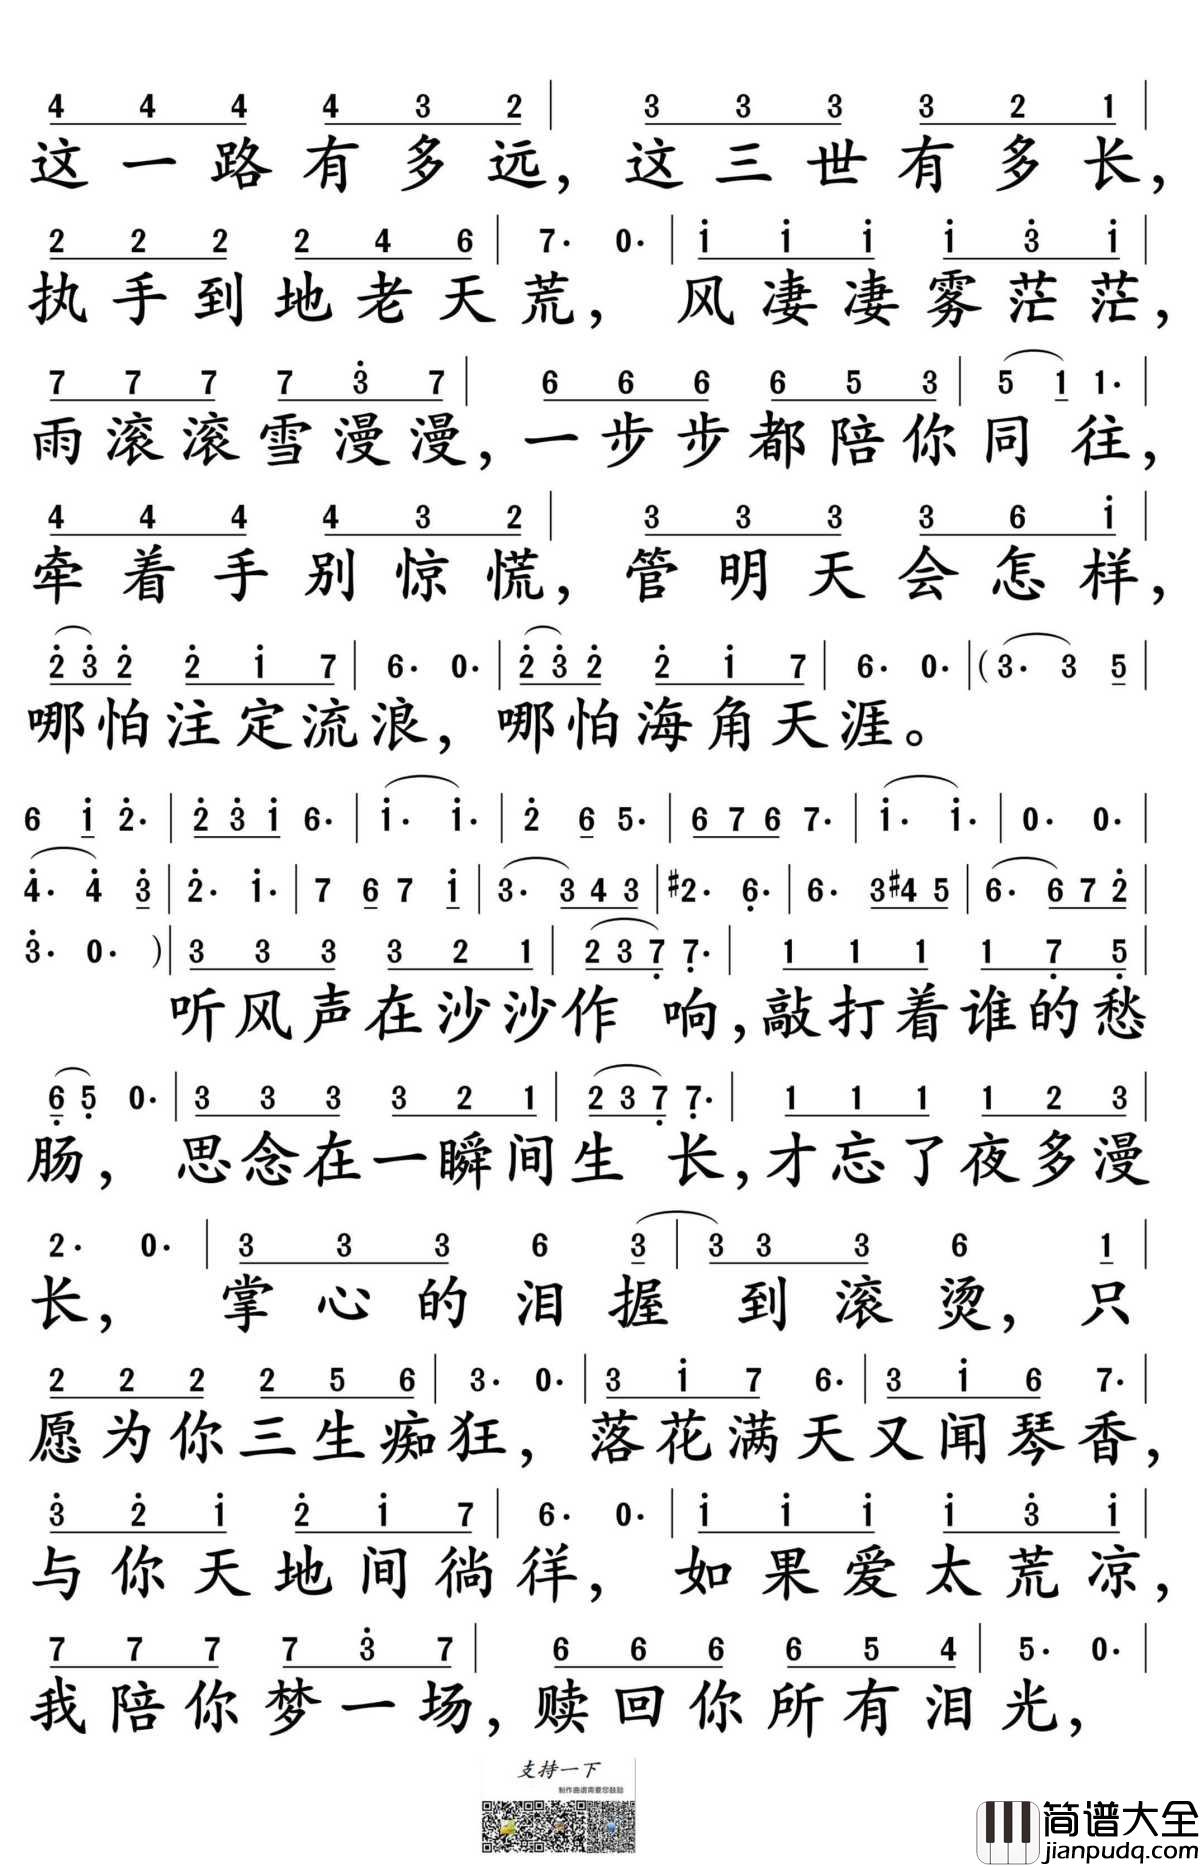 4 4 4 4 3 2 | 3 3 3 3 2 1 |
这一路有多远，这三世有多长，
2 2 2 2 4 6 | 7· 0· | i i i i 3̇ i |
执手到地老天荒，风凄凄雾茫茫，
7 7 7 7 3̇ 7 | 6 6 6 6 5 3 | 5 1 1· |
雨滚滚雪漫漫，一步步都陪你同往，
4 4 4 4 3 2 | 3 3 3 3 6 i |
牵着手别惊慌，管明天会怎样，
2̇ 3̇ 2̇ 2̇ i 7 | 6· 0· | 2̇ 3̇ 2̇ 2̇ i 7 | 6· 0· | (3· 3 5 |
哪怕注定流浪，哪怕海角天涯。
6 i 2̇· | 2̇ 3̇ i 6· | i· i· | 2̇ 6 5· | 6 7 6 7· | i· i· | 0· 0· |
4̇· 4̇ 3̇ | 2̇· i· | 7 6 7 i | 3· 3 4 3 | #2· 6̣· | 6· 3 #4 5 | 6· 6 7 2̇ |
3̇· 0· ) | 3 3 3 3 2 1 | 2 3 7̣ 7̣· | 1 1 1 1 7̣ 5̣ |
听风声在沙沙作响，敲打着谁的愁
6̣ 5̣ 0· | 3 3 3 3 2 1 | 2 3 7̣ 7̣· | 1 1 1 1 2 3 |
肠，思念在一瞬间生长，才忘了夜多漫
2· 0· | 3 3 3 6 3 | 3 3 3 6 1 |
长，掌心的泪握到滚烫，只
2 2 2 2 5 6 | 3· 0· | 3 i 7 6· | 3 i 6 7· |
愿为你三生痴狂，落花满天又闻琴香，
3̇ 2̇ i 2̇ i 7 | 6· 0· | i i i i 3̇ i |
与你天地间徜徉，如果爱太荒凉，
7 7 7 7 3̇ 7 | 6 6 6 6 5 4 | 5· 0· |
我陪你梦一场，赎回你所有泪光，
支持一下
制作曲谱需要您鼓励
简谱大全
jianpudq.com